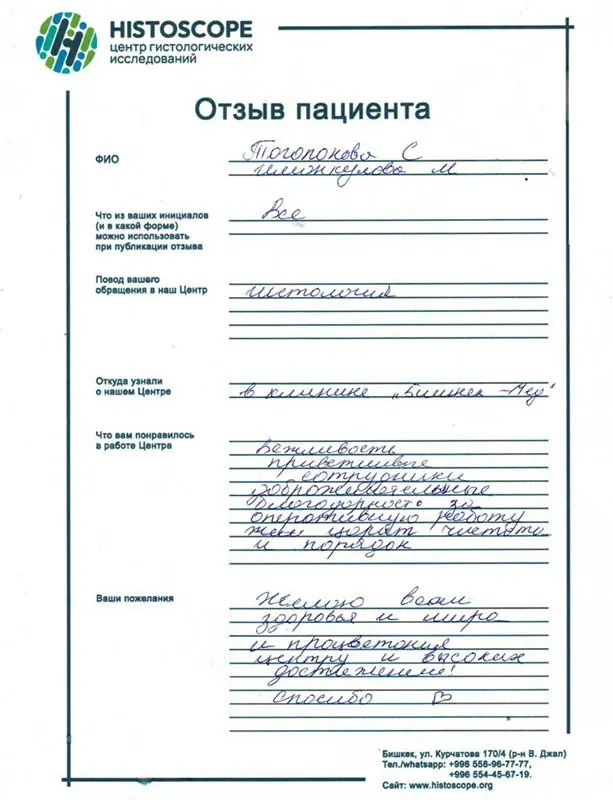 HISTOSCOPE
центр гистологических
исследований
Отзыв пациента
ФИО
Тогопокова С
М
Что из ваших инициалов
(и в какой форме)
можно использовать
при публикации отзыва
Все
Повод вашего
обращения в наш Центр
гистология
Откуда узнали
о нашем Центре
в клинике „Бишкек-Мед"
Что вам понравилось
в работе Центра
Вежливость
приветливые
сотрудники
доброжелательные
благодарность за
оперативную работу
царят чистота
и порядок
Ваши пожелания
Желаю всем
здоровья и мира
и процветания
центру и высоких
достижений!
спасибо
Бишкек, ул. Курчатова 170/4 (р-н В. Джал)
Тел./whatsapp: +996 558-96-77-77,
+996 554-45-67-19.
Сайт: www.histoscope.org